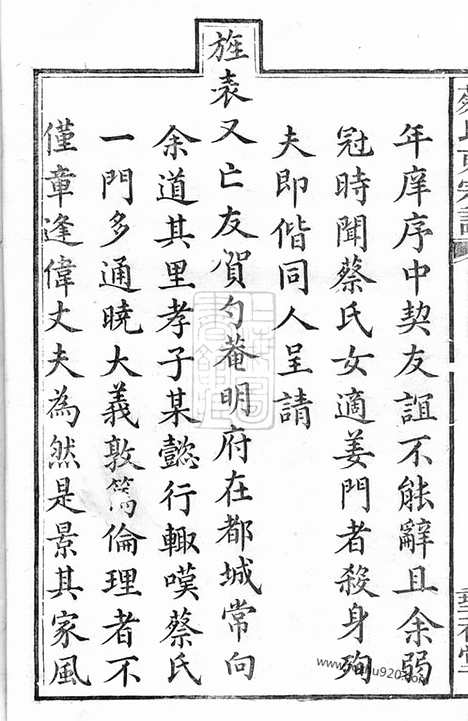 年庠序中契友誼不能辭且余弱
冠時聞蔡氏女適姜門者殺身殉
夫即偕同人呈請
旌表又亡友賀勺菴明府在都城常向
余道其里孝子某懿行輙嘆蔡氏
一門多通曉大義敦篤倫理者不
僅章逢偉丈夫為然是景其家風